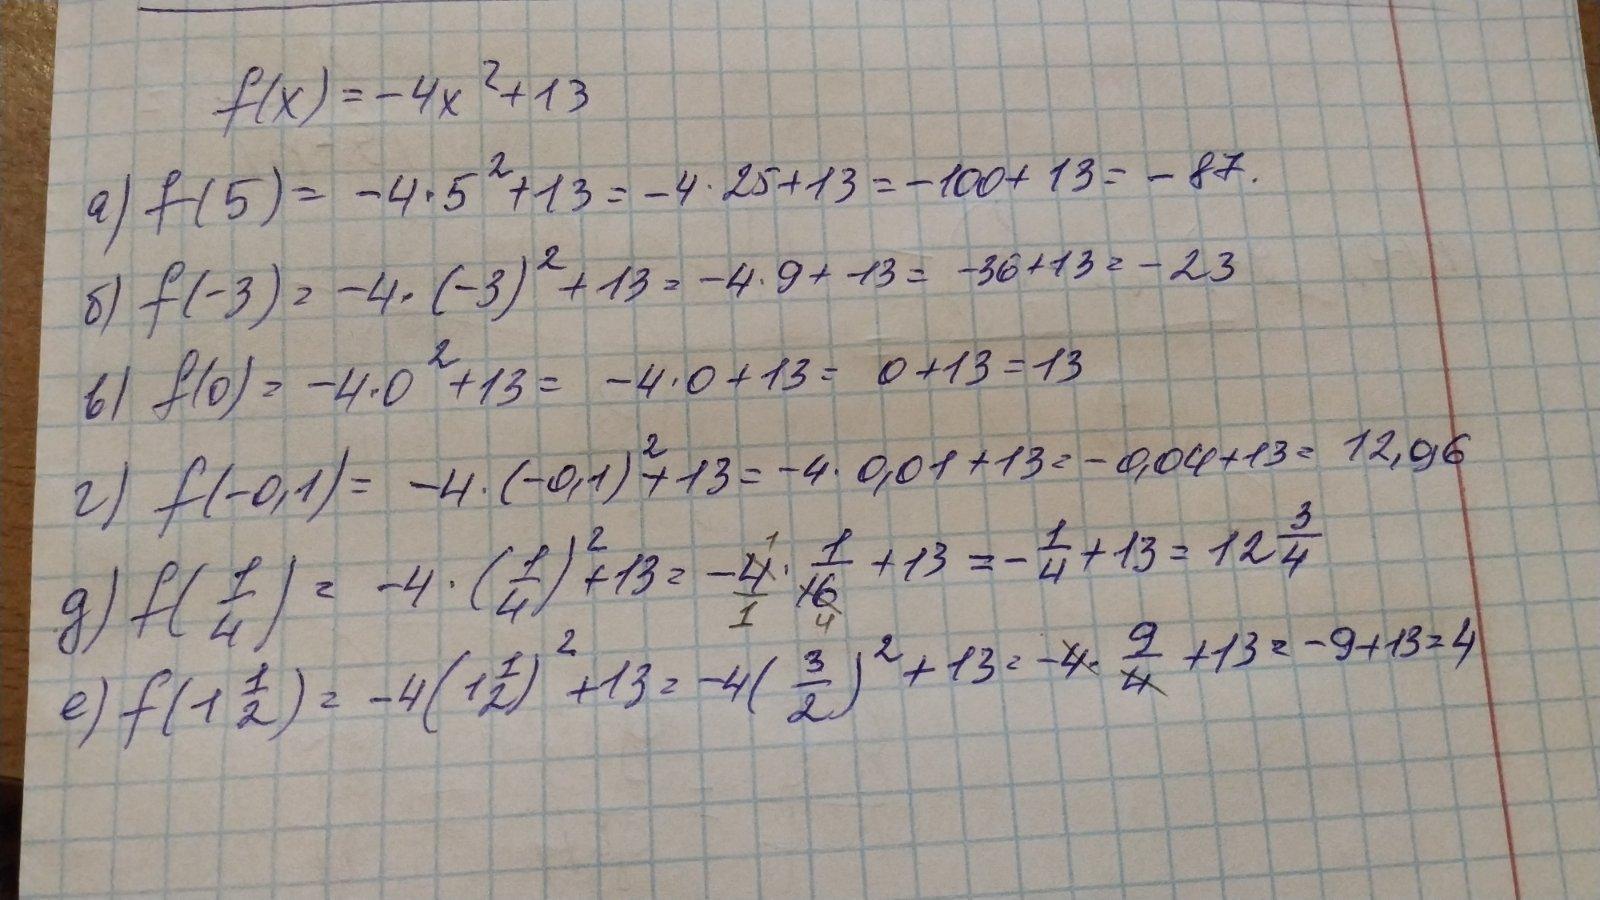 f(x) = -4x² + 13
а) f(5) = -4·5² + 13 = -4·25 + 13 = -100 + 13 = -87.
б) f(-3) = -4·(-3)² + 13 = -4·9 + 13 = -36 + 13 = -23
в) f(0) = -4·0² + 13 = -4·0 + 13 = 0 + 13 = 13
г) f(-0,1) = -4·(-0,1)² + 13 = -4·0,01 + 13 = -0,04 + 13 = 12,96
д) f(1/4) = -4·(1/4)² + 13 = -4/1·1/16 + 13 = -1/4 + 13 = 12 3/4
е) f(1 1/2) = -4(1 1/2)² + 13 = -4(3/2)² + 13 = -4·9/4 + 13 = -9 + 13 = 4